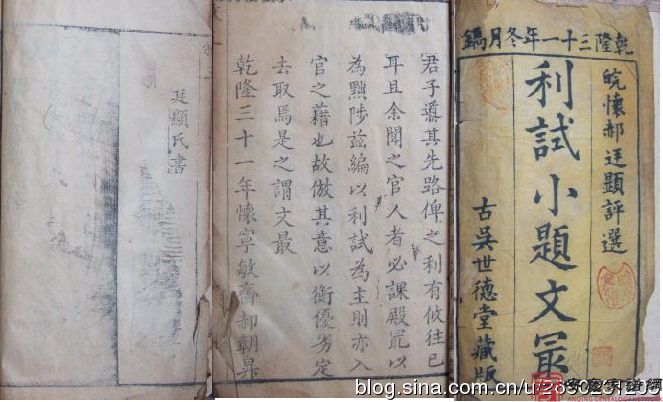 乾隆三十一年冬月鐫
皖懷郝廷顯評選
利試小題文最
古吳世德堂藏版
君子導其先路俾之利有攸往已
耳且余聞之官人者必課殿最以
為黜陟茲編以利試為主則亦入
官之藉也故倣其意以衡優劣定
去取焉是之謂文最
乾隆三十一年懷寧敏齋郝朝昇
廷顯氏書
blog.sina.com.cn/u/
家譜網